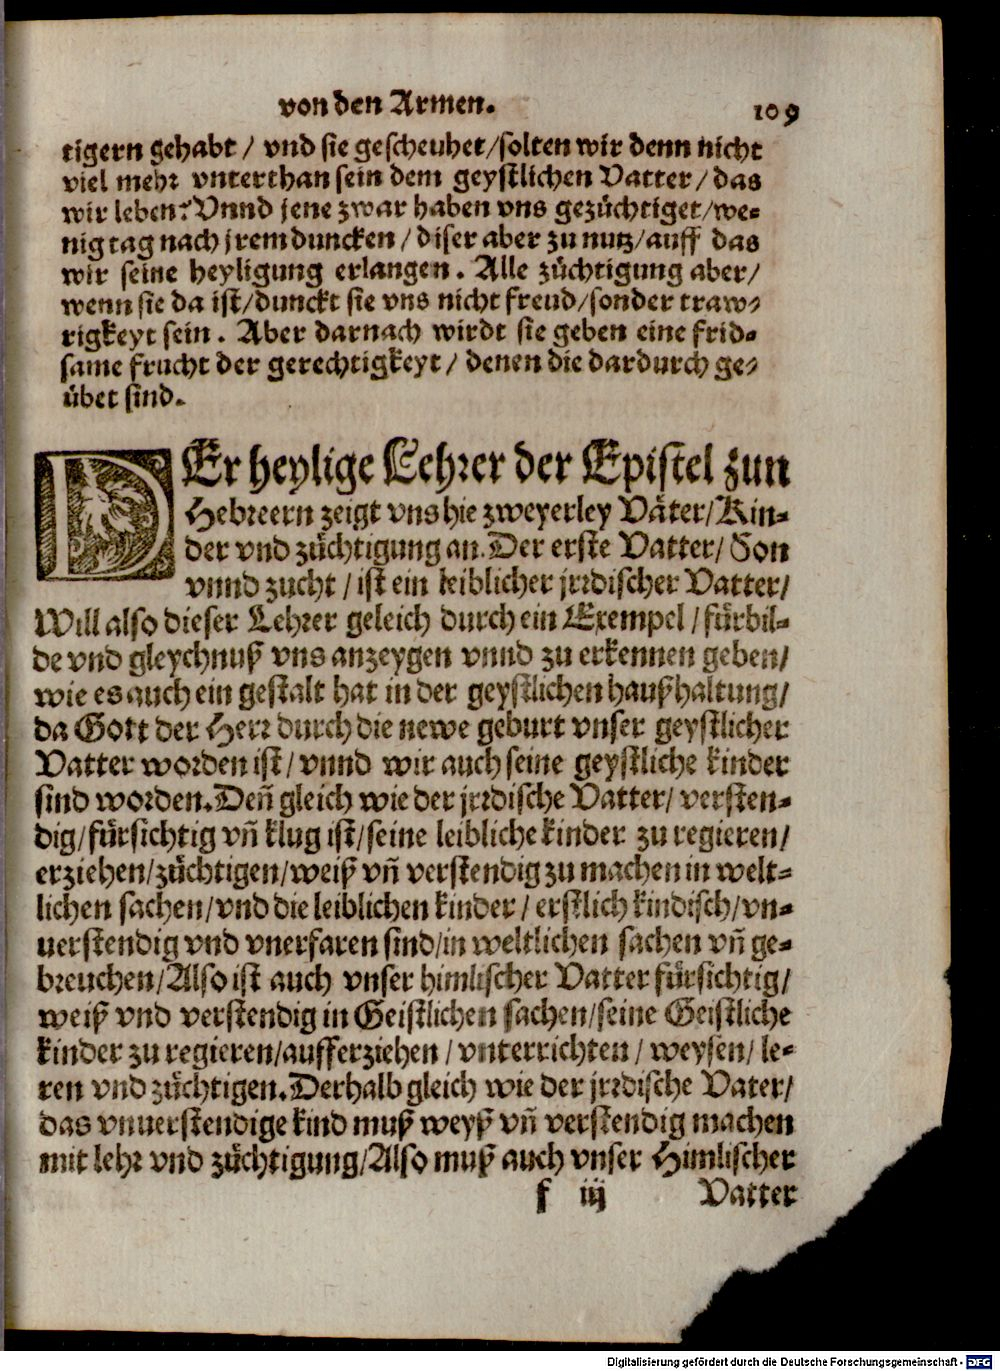 von den Armen. 109
tigern gehabt / vnd sie gescheuhet/solten wir denn nicht
viel mehr vnterthan sein dem geystlichen Vatter/das
wir leben? Vnnd jene zwar haben vns gezüchtiget/we=
nig tag nach jrem duncken / diser aber zu nutz/auff das
wir seine heyligung erlangen. Alle züchtigung aber/
wenn sie da ist/dunckt sie vns nicht freud/sonder traw=
rigkeyt sein. Aber darnach wirdt sie geben eine frid=
same frucht der gerechtigkeyt / denen die dardurch ge=
übet sind.
DEr heylige Lehrer der Epistel zun
Hebreern zeigt vns hie zweyerley Väter/Kin=
der vnd züchtigung an. Der erste Vatter/ Son
vnnd zucht / ist ein leiblicher jrrdischer Vatter/
Will also dieser Lehrer geleich durch ein Exempel / fürbil=
de vnd gleychnuß vns anzeygen vnnd zu erkennen geben/
wie es auch ein gestalt hat in der geystlichen haußhaltung/
da Gott der Herr durch die newe geburt vnser geystlicher
Vatter worden ist/ vnnd wir auch seine geystliche kinder
sind worden. Deñ gleich wie der jrrdische Vatter/ versten=
dig/fürsichtig vñ klug ist/seine leibliche kinder zu regieren/
erziehen/züchtigen/weiß vñ verstendig zu machen in welt=
lichen sachen/vnd die leiblichen kinder / erstlich kindisch/vn=
uerstendig vnd vnerfaren sind/in weltlichen sachen vñ ge=
breuchen/Also ist auch vnser himlischer Vatter fürsichtig/
weiß vnd verstendig in Geistlichen sachen/seine Geistliche
kinder zu regieren/aufferziehen / vnterrichten / weysen/ le=
ren vnd züchtigen. Derhalb gleich wie der jrrdische Vater/
das vnuerstendige kind muß weyß vñ verstendig machen
mit lehr vnd züchtigung/Also muß auch vnser Himlischer
f iij Vatter
Digitalisierung gefördert durch die Deutsche Forschungsgemeinschaft - DFG